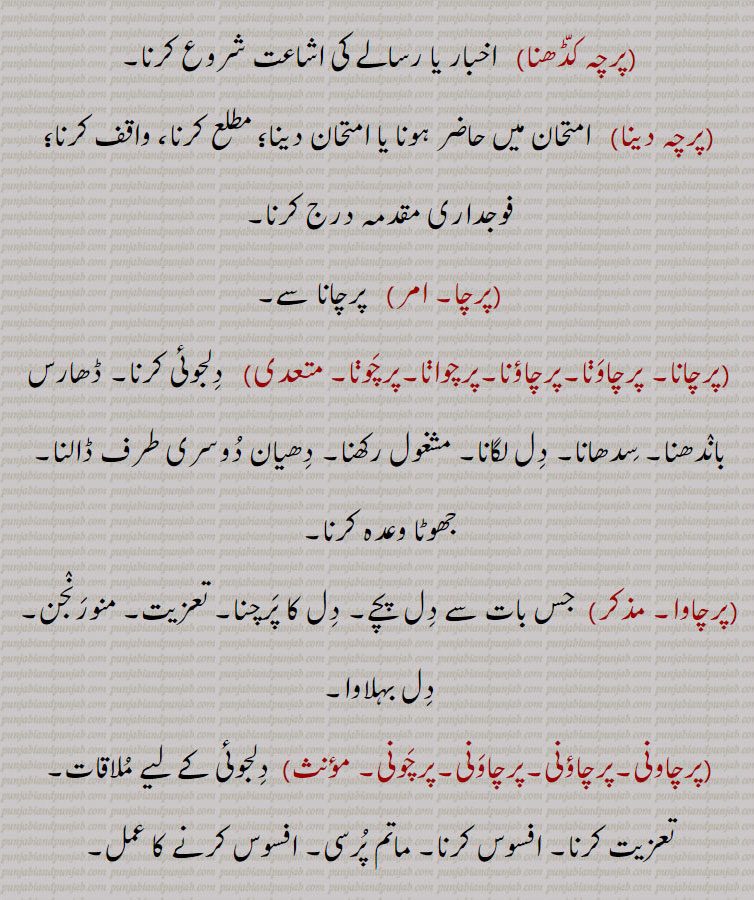 (پرچہ کڈّھنا) اخبار یا رسالے کی اشاعت شروع کرنا۔
(پرچہ دینا) امتحان میں حاضر ہونا یا امتحان دینا؛ مطلع کرنا، واقف کرنا؛
فوجداری مقدمہ درج کرنا۔
(پرچا۔ امر) پرچانا سے۔
(پرچانا۔ پرچاوَݨا۔پرچاؤنا۔پرچواݨا۔پرچَوݨا۔ متعدی) دِلجوئی کرنا۔ ڈھارس
بانْدھنا۔ سِدھانا۔ دِل لگانا۔ مشغول رکھنا۔ دِھیان دُوسری طرف ڈالنا۔
جھوٹا وعدہ کرنا۔
(پرچاوا۔ مذکر) جس بات سے دِل پچے۔ دِل کا پَرچنا۔ تعزیت۔ منورَنْجن۔
دِل بہلاوا۔
(پرچاونی۔پرچاؤنی۔پرچاوَنی۔پرچَونی۔ مؤنث) دِلجوئی کے لیے مُلاقات۔
تعزیت کرنا۔ افسوس کرنا۔ ماتم پُرسی۔ افسوس کرنے کا عمل۔